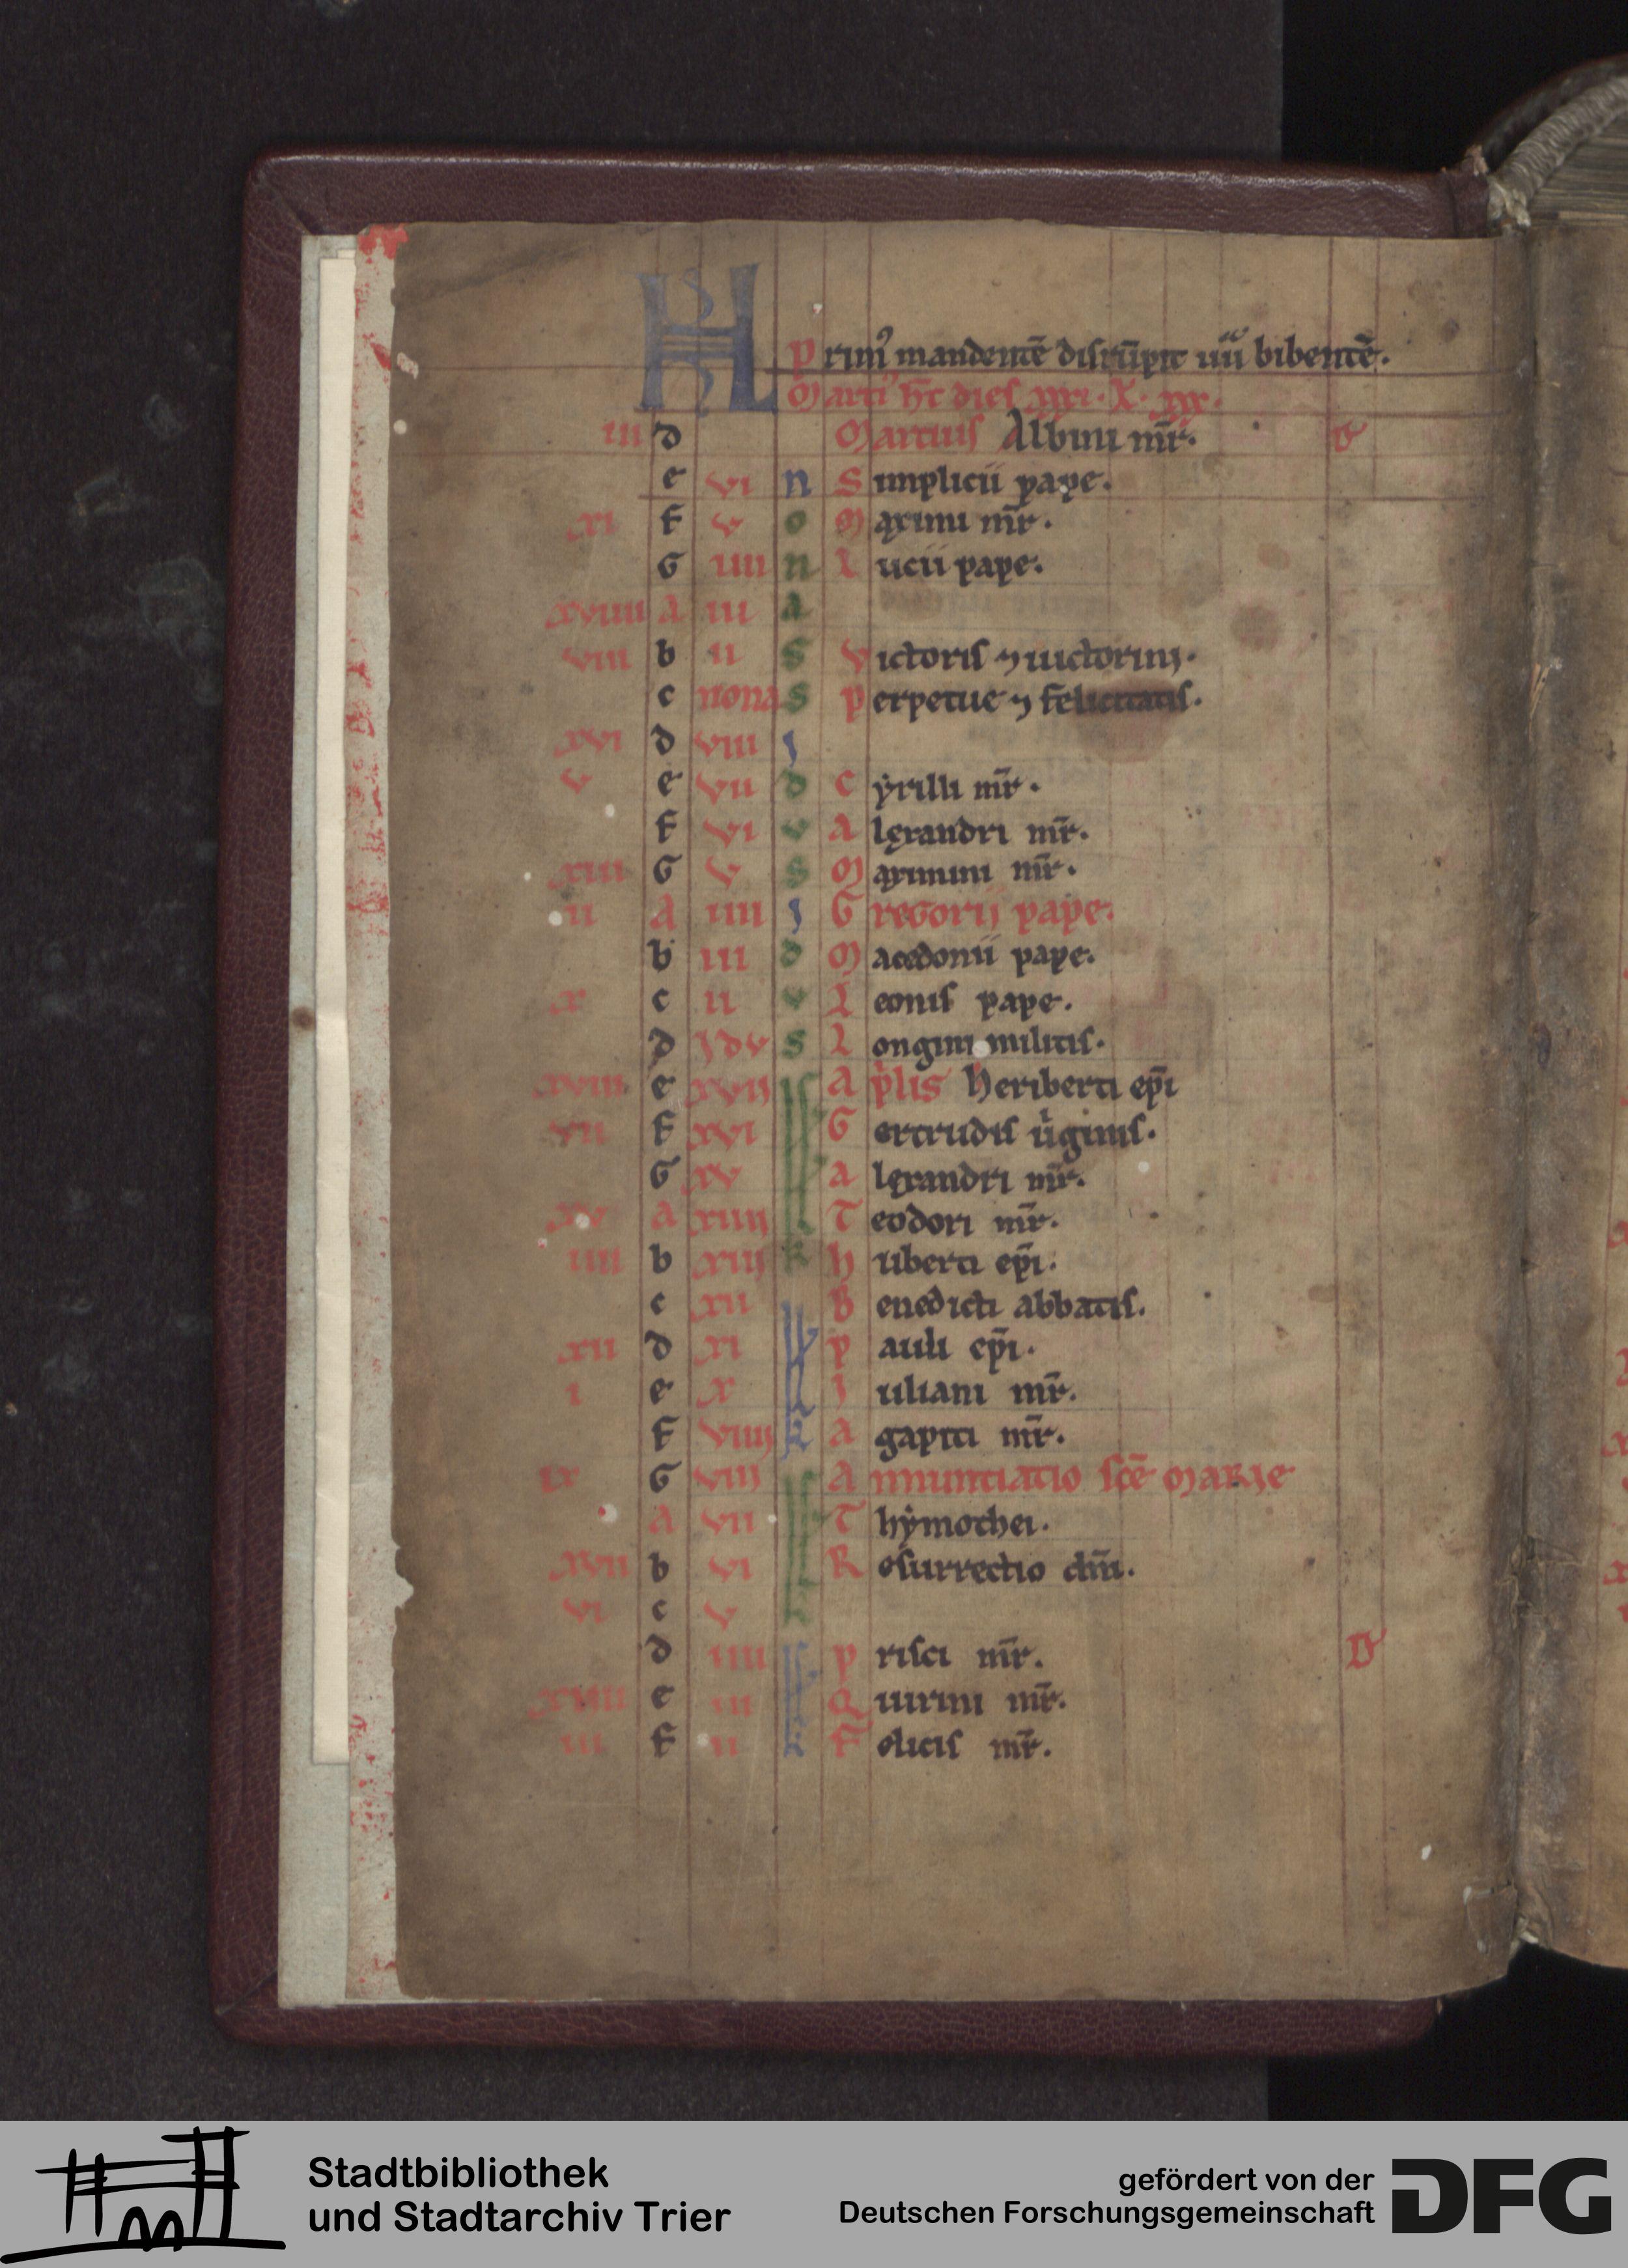 KL Primꝰ mandentē disrūpit uͥuͥ bibentē.
Martiꝰ hꝫ dies xxxi. L. xxx.
iii d Marcius Albini mr̄. D
e vi n Simplicii pape.
xi f v o Maximi mr̄.
G iiii n Lucii pape.
xviiii A iii a
viii b ii s Victoris ⁊ uictorini.
c nona s Perpetue ⁊ felicitatis.
xvi d viii i
v e vii d Cẏrilli mr̄.
f vi v Alexandri mr̄.
xiii G v s Maximini mr̄.
ii A iiii i Gregorij pape.
b iii d Macedonii pape.
x c ii v Leonis pape.
d Jdv s Longini militis.
xviii e xvii k Aplis Heriberti ep̄i
vii f xvi Gertrudis uͥginis.
G xv Alexandri mr̄.
xv A xiiii Teodori mr̄.
iiii b xiii k Huberti ep̄i.
c xii Benedicti abbatis.
xii d xi Pauli ep̄i.
i e x Juliani mr̄.
f viiii k Agapiti mr̄.
ix G viii Annuntiatio sc̄e Marie
A vii Thẏmothei.
xvii b vi Resurrectio dn̄i.
vi c v
d iiii Prisci mr̄. D
xiiii e iii Quirini mr̄.
iii f ii k Felicis mr̄.
Stadtbibliothek
und Stadtarchiv Trier
gefördert von der
Deutschen Forschungsgemeinschaft
DFG